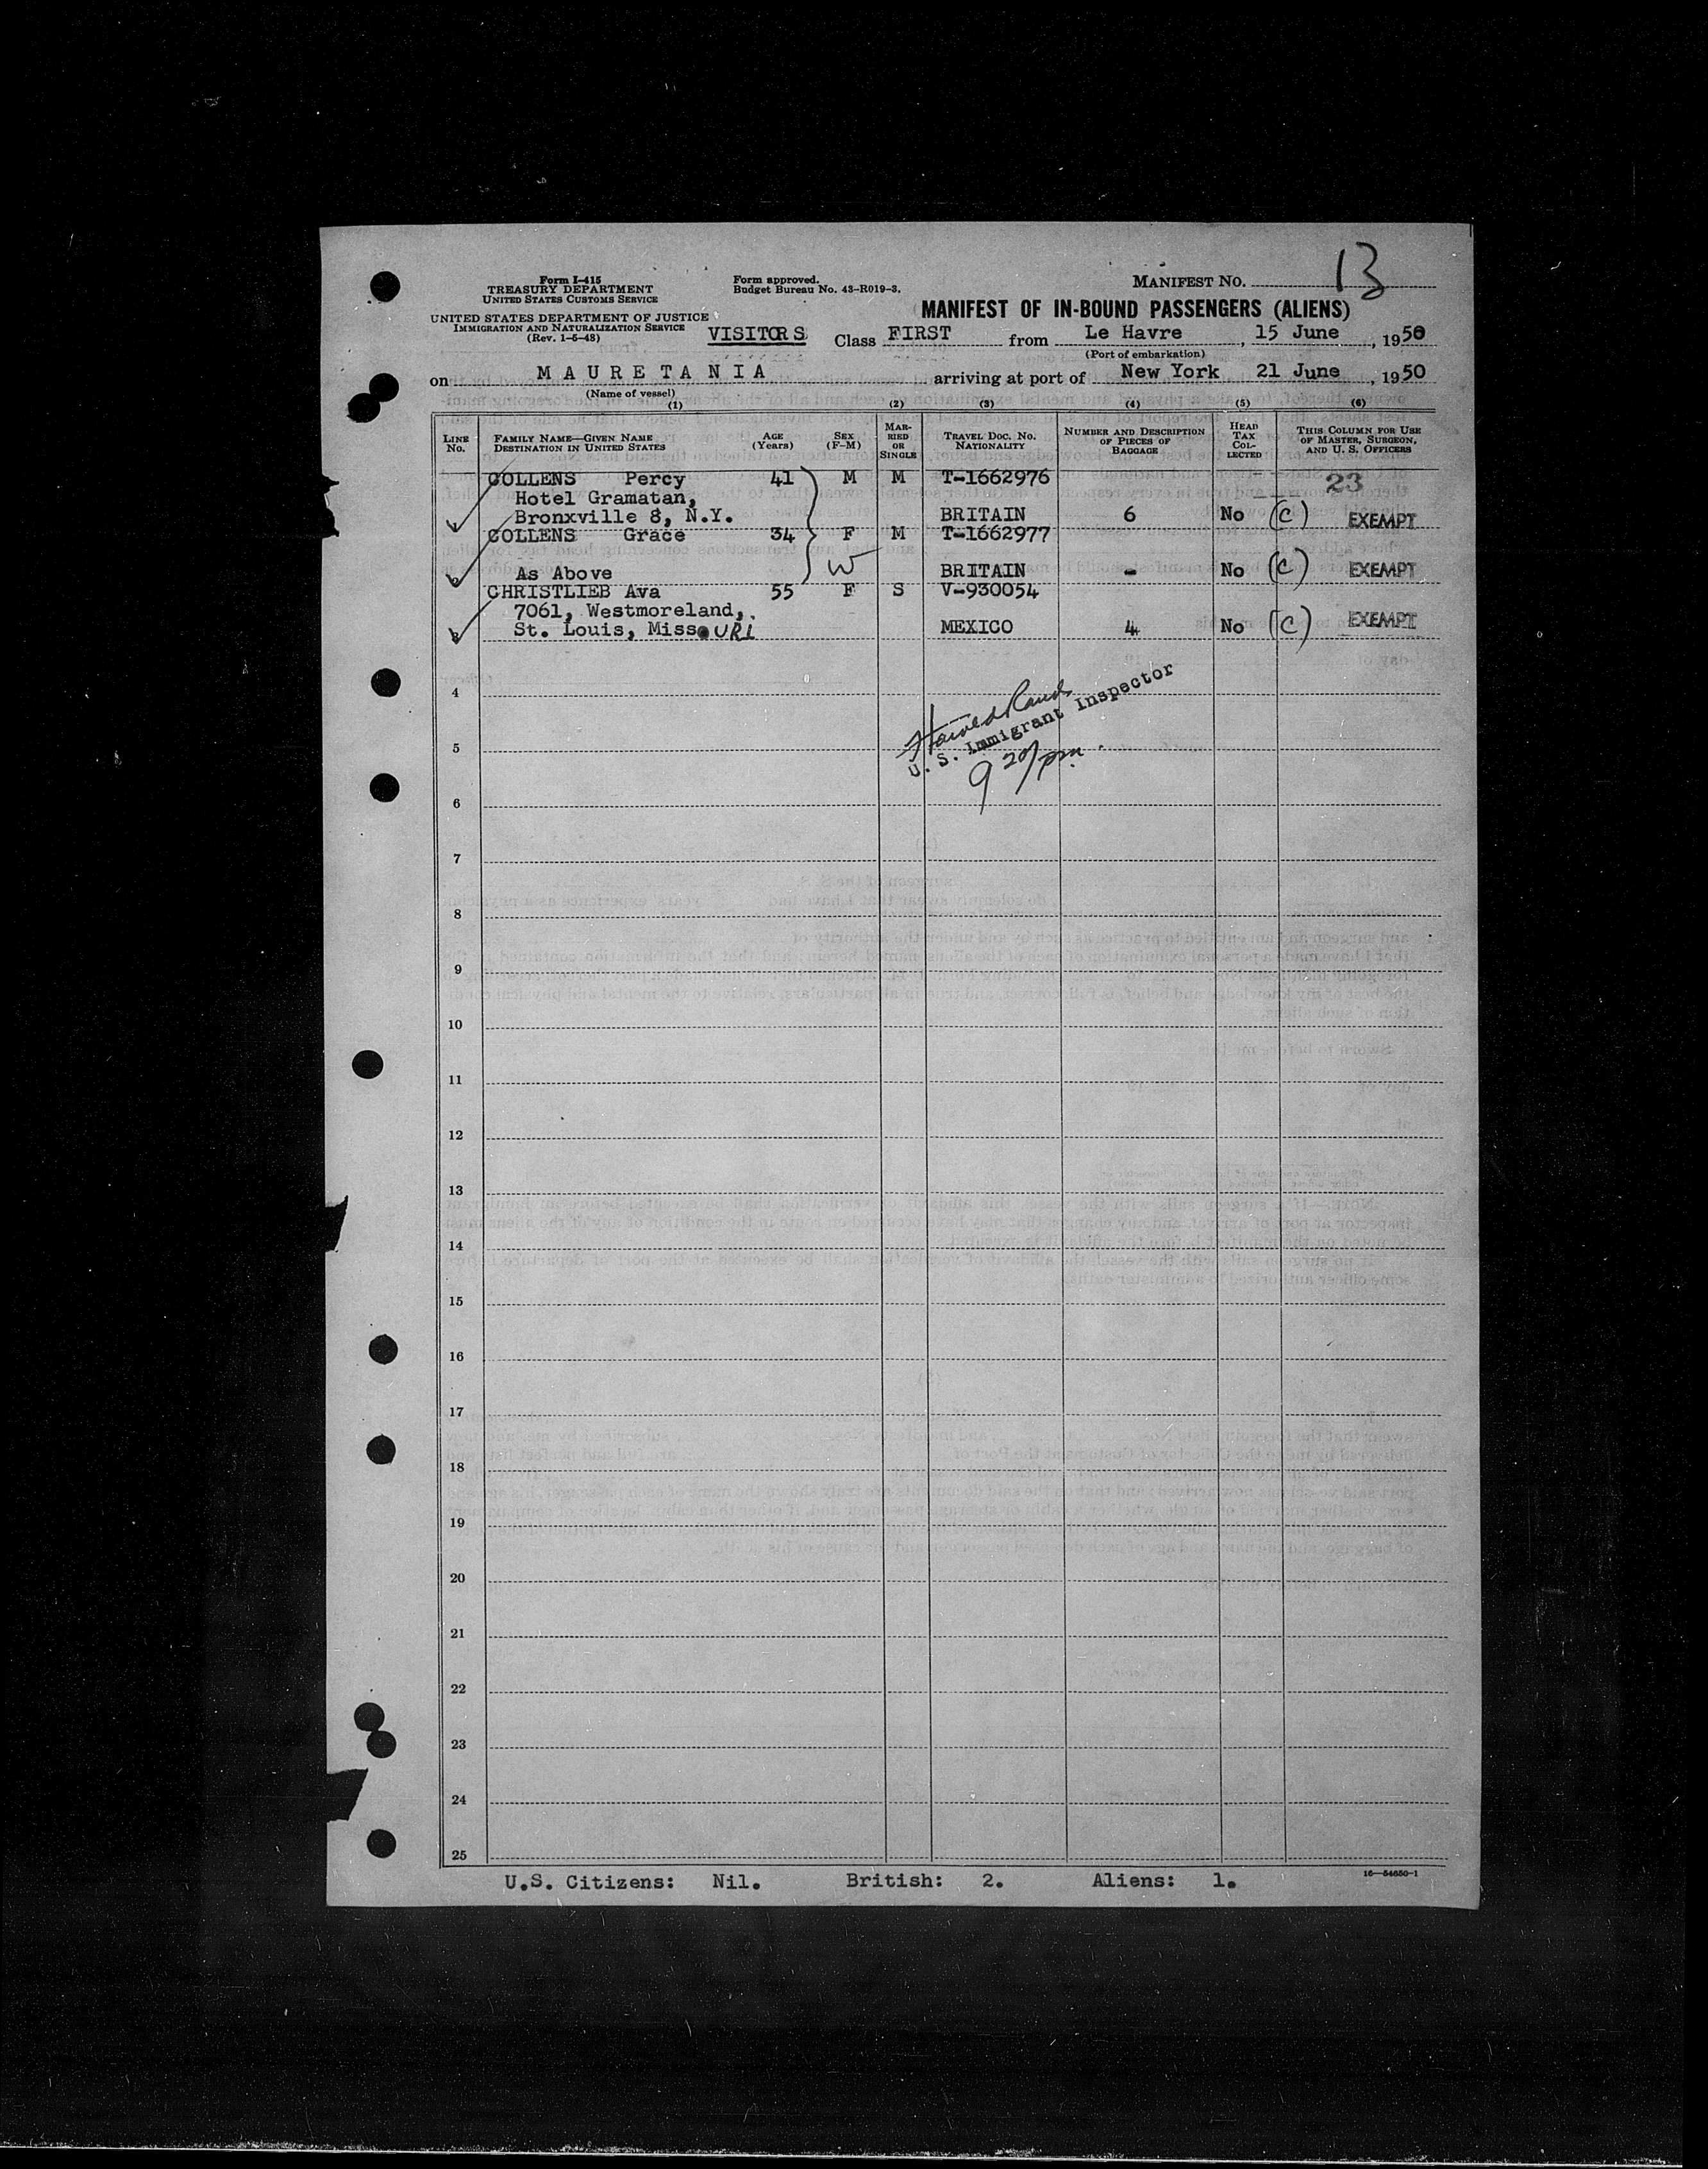 Form I-415
TREASURY DEPARTMENT
UNITED STATES CUSTOMS SERVICE
UNITED STATES DEPARTMENT OF JUSTICE
IMMIGRATION AND NATURALIZATION SERVICE
(Rev. 1-5-48)
Form approved.
Budget Bureau No. 43-R019-3.
MANIFEST NO. 13
MANIFEST OF IN-BOUND PASSENGERS (ALIENS)
VISITORS Class FIRST from Le Havre, 15 June, 1950
(Port of embarkation)
on MAURETANIA arriving at port of New York 21 June, 1950
(Name of vessel)
(1) (2) (3) (4) (5) (6)
LINE No. FAMILY NAME—GIVEN NAME DESTINATION IN UNITED STATES AGE (Years) SEX (F-M) MARRIED OR SINGLE TRAVEL DOC. NO. NATIONALITY NUMBER AND DESCRIPTION OF PIECES OF BAGGAGE HEAD TAX COLLECTED THIS COLUMN FOR USE OF MASTER, SURGEON, AND U. S. OFFICERS
COLLENS Percy 41 M M T-1662976 23
Hotel Gramatan,
1 Bronxville 8, N.Y. BRITAIN 6 No (C) EXEMPT
COLLENS Grace 34 F M T-1662977
W
2 As Above BRITAIN - No (C) EXEMPT
CHRISTLIEB Ava 55 F S V-930054
7061, Westmoreland,
3 St. Louis, MissOURI MEXICO 4 No (C) EXEMPT
4
U. S. Immigrant Inspector
5
9 20/pm.
6
7
8
9
10
11
12
13
14
15
16
17
18
19
20
21
22
23
24
25
U.S. Citizens: Nil. British: 2. Aliens: 1.
16—54650-1